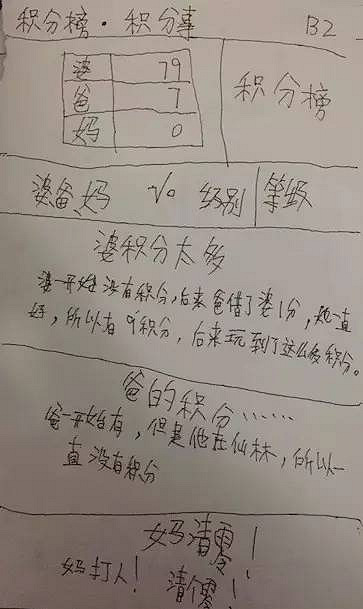 积分榜·积分事 B2
婆 79
爸 7
妈 0
积分榜
婆爸妈 V0 级别 等级
婆积分太多
婆一开始没有积分,后来爸借了婆1分,她一直
好,所以有 积分,后来玩到了这么多积分。
爸的积分……
爸一开始有,但是他在仙林,所以一
直没有积分
妈清零!
妈打人!清零!